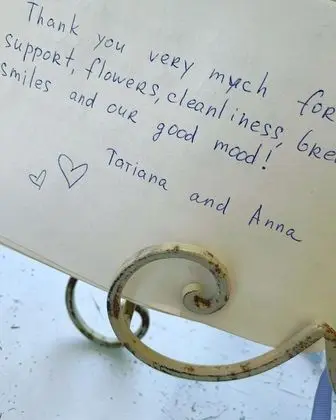 Thank you very much for
support, flowers, cleanliness,
smiles and our good mood!
Tatiana and Anna